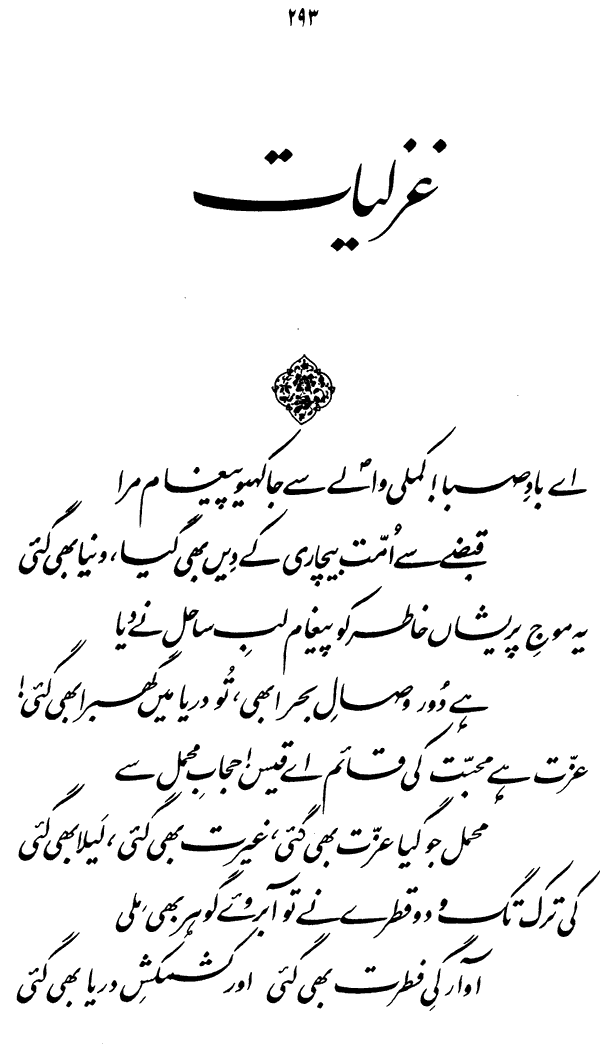 ۲۹۳
غزلیات
اے بادِ صبا! کملی والےؐ سے جا کہیو پیغام مرا
قبضے سے اُمّت بیچاری کے دِیں بھی گیا، دنیا بھی گئی
یہ موجِ پریشاں خاطر کو پیغام لبِ ساحل نے دیا
ہے دُور وصالِ بحر ابھی، تُو دریا میں گھبرا بھی گئی!
عزّت ہے محبّت کی قائم اے قیس! حجابِ محمل سے
محمل جو گیا عزّت بھی گئی، غیرت بھی گئی، لَیلا بھی گئی
کی ترک تگ و دو قطرے نے تو آبروئے گوہر بھی مِلی
آوارگیِ فطرت بھی گئی اور کشمکشِ دریا بھی گئی